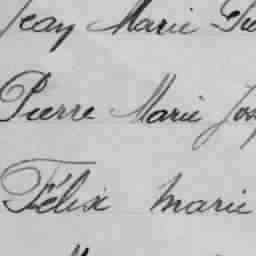 Jean Marie
Pierre Marie Jos
Félix Marie